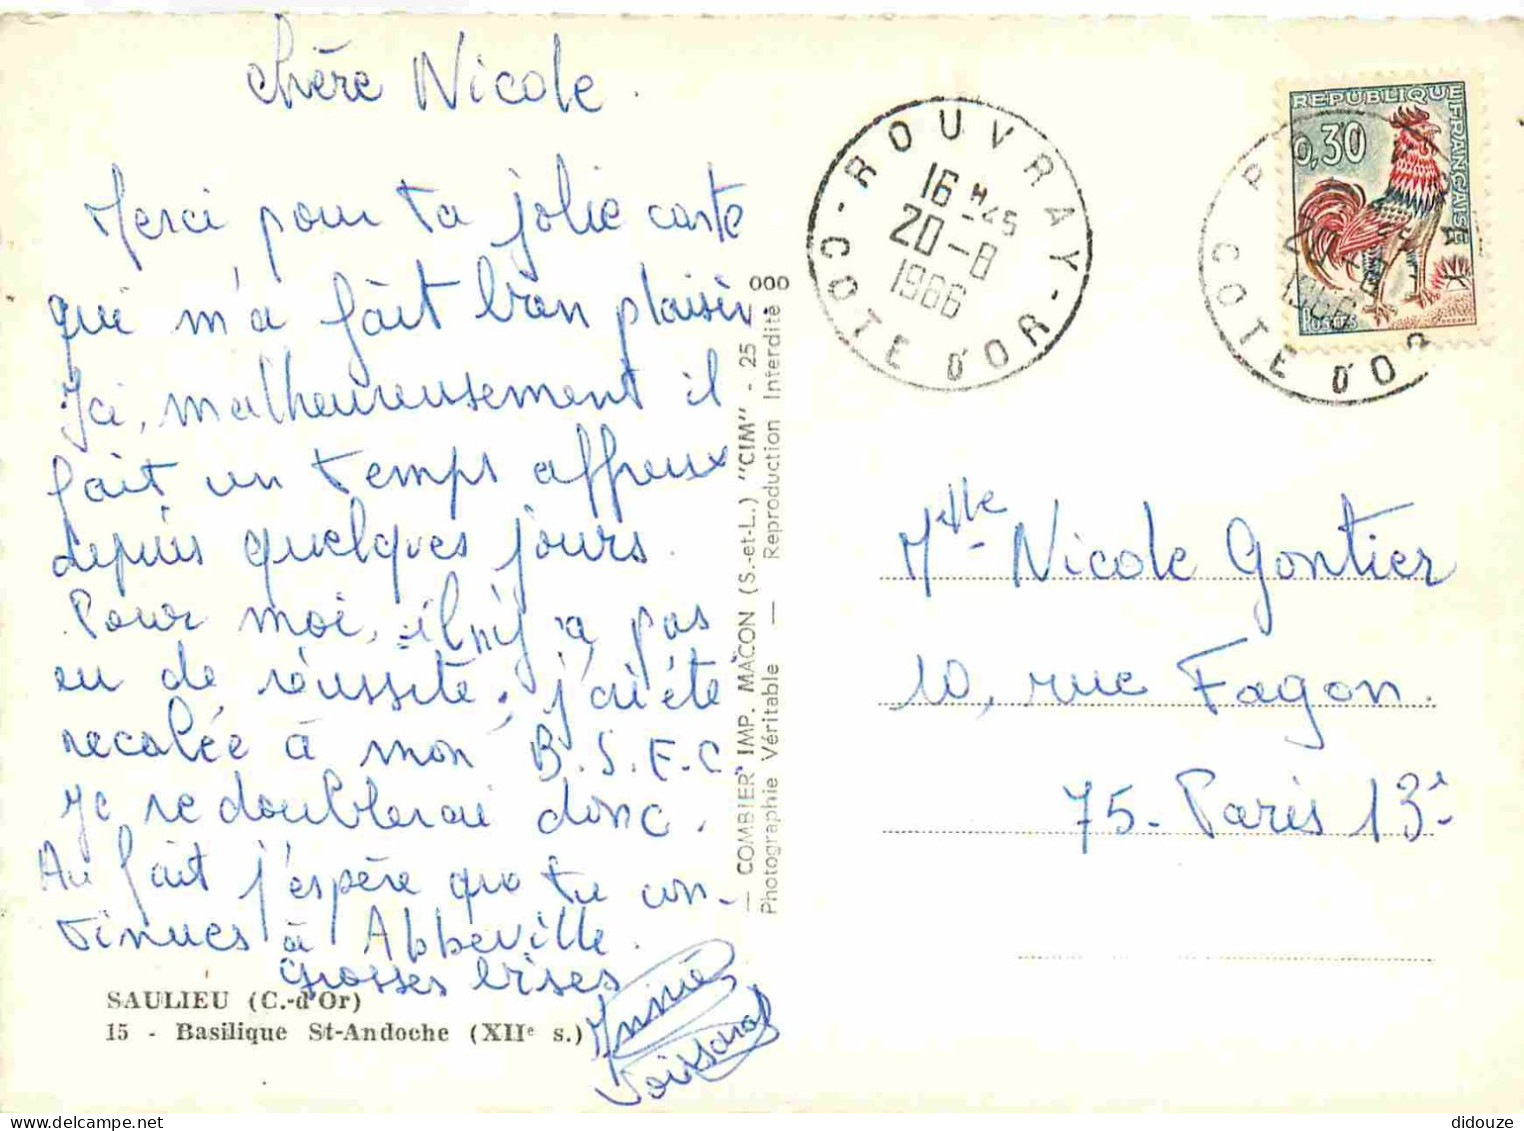 chère Nicole.
Merci pour ta jolie carte
qui m'a fait bon plaisir.
Ici, malheureusement il
fait un temps affreux
depuis quelques jours.
Pour moi, il n'y a pas
eu de réussite, j'ai été
recalée à mon B.S.E.C
Je redoublerai donc.
Au fait j'espère que tu con-
tinues à Abbeville.
grosses bises
Annie
SAULIEU (C.-d'Or)
15 - Basilique St-Andoche (XIIe s.)
— COMBIER IMP. MACON (S.-et-L.) "CIM" - 25 000
Photographie Véritable — Reproduction Interdite
- ROUVRAY -
COTE D'OR
16 H -45
20 -8
1966
REPUBLIQUE
FRANÇAISE
0,30
POSTES
20 -8
1966
COTE D'OR
Melle Nicole Gontier
10, rue Fagon.
75 - Paris 13è
didouze